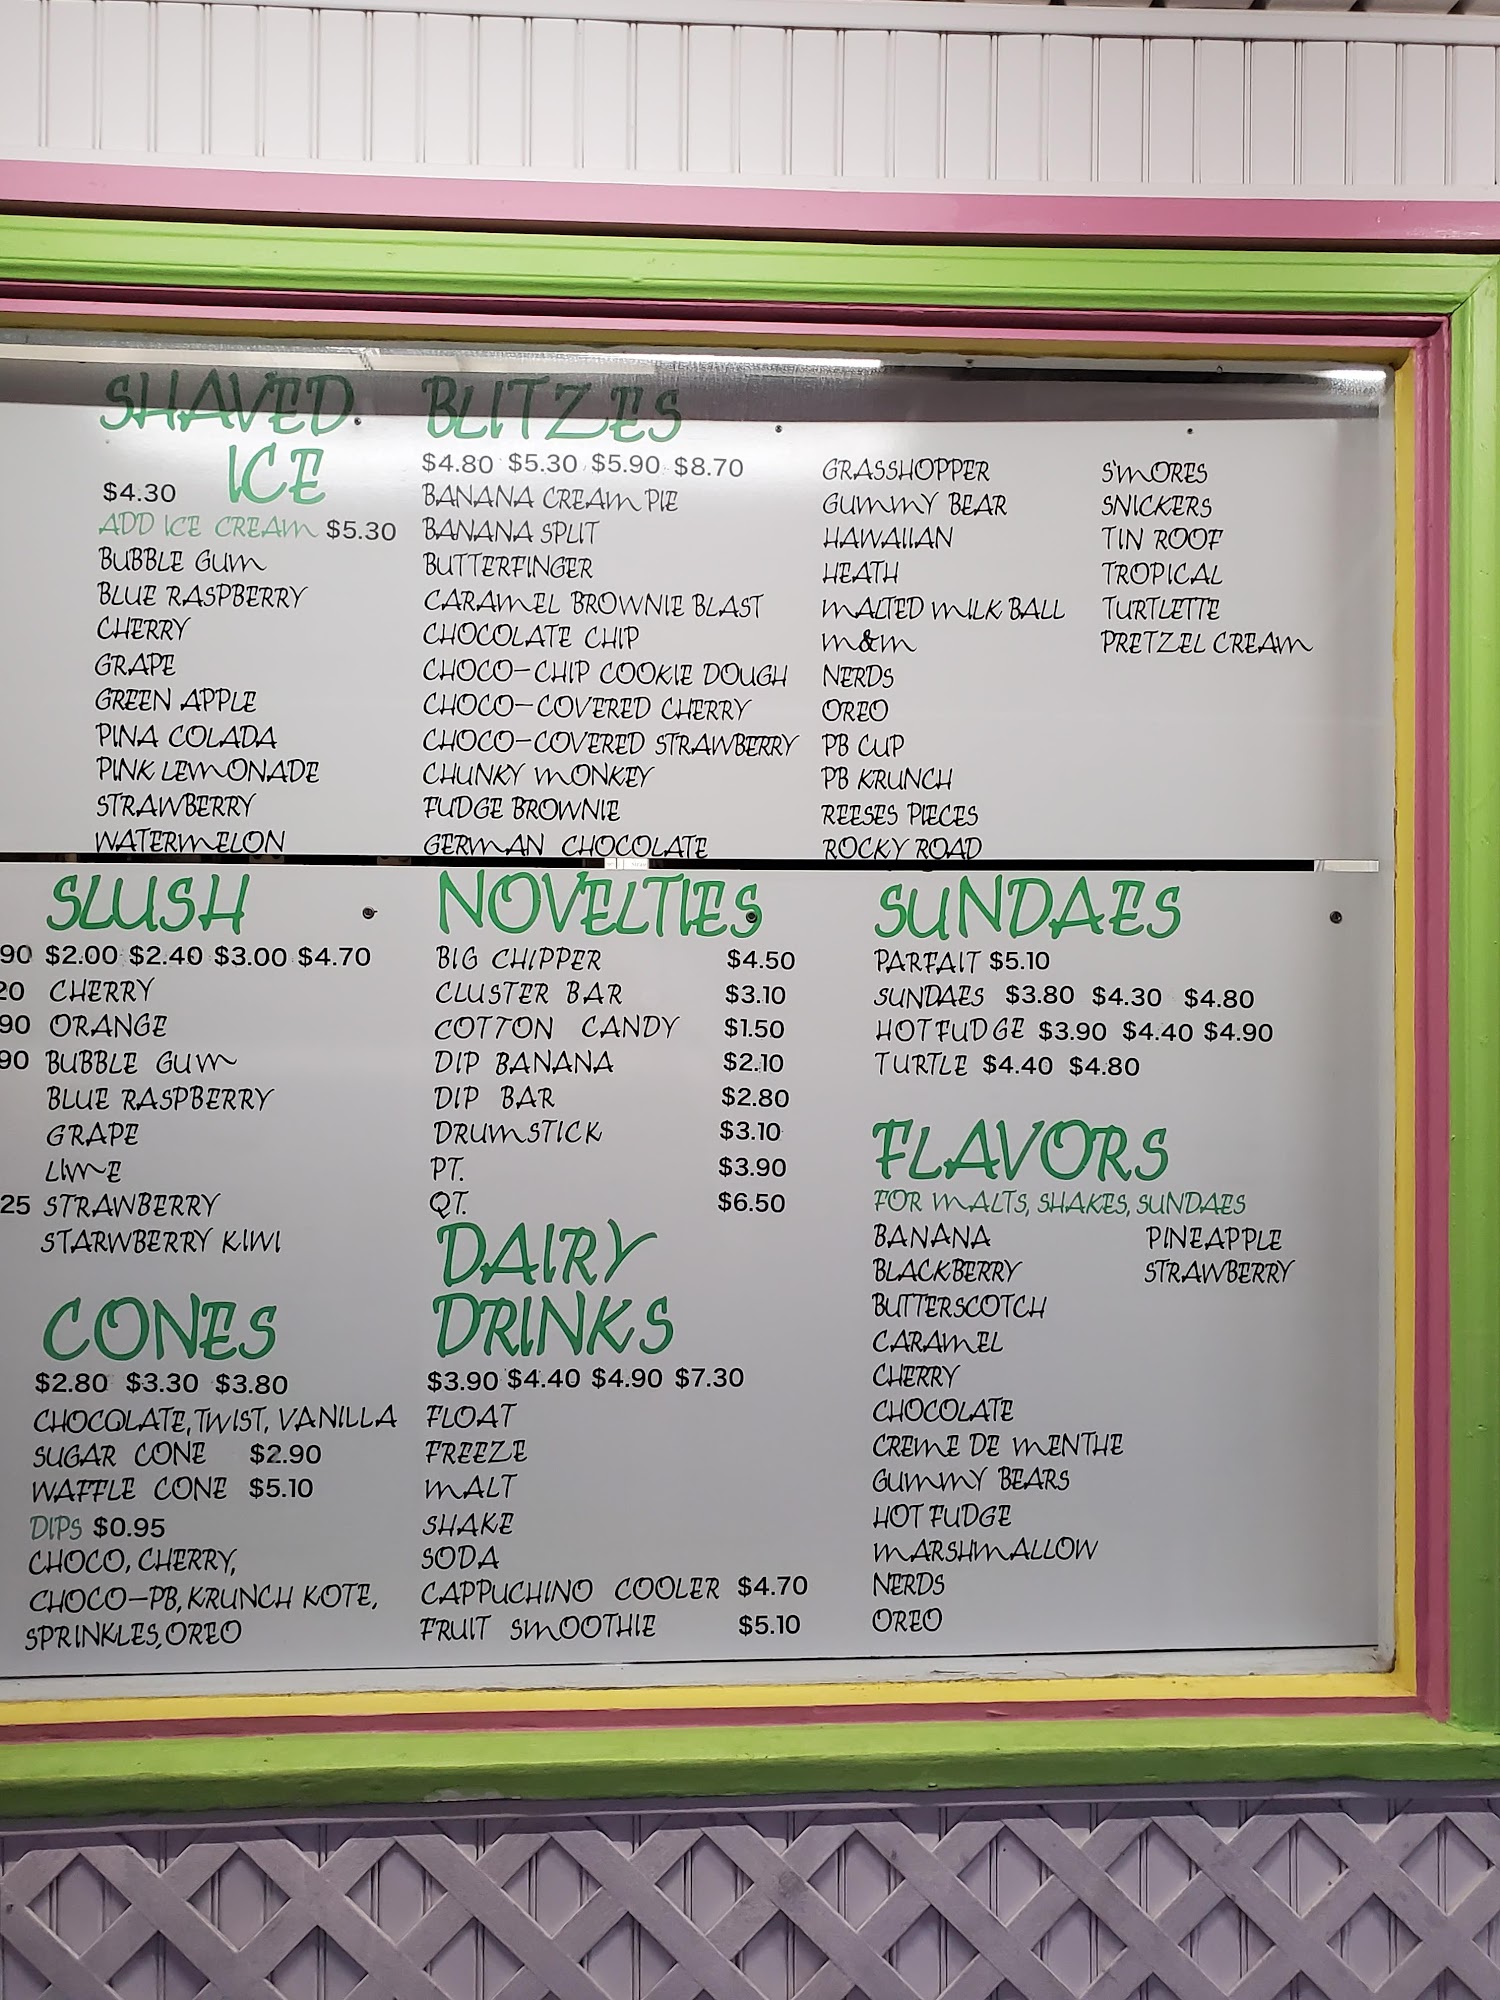 SHAVED
ICE
$4.30
ADD ICE CREAM $5.30
BUBBLE GUM
BLUE RASPBERRY
CHERRY
GRAPE
GREEN APPLE
PINA COLADA
PINK LEMONADE
STRAWBERRY
WATERMELON
BLITZES
$4.80 $5.30 $5.90 $8.70
BANANA CREAM PIE
BANANA SPLIT
BUTTERFINGER
CARAMEL BROWNIE BLAST
CHOCOLATE CHIP
CHOCO-CHIP COOKIE DOUGH
CHOCO-COVERED CHERRY
CHOCO-COVERED STRAWBERRY
CHUNKY MONKEY
FUDGE BROWNIE
GERMAN CHOCOLATE
GRASSHOPPER
GUMMY BEAR
HAWAIIAN
HEATH
MALTED MILK BALL
M&M
NERDS
OREO
PB CUP
PB KRUNCH
REESES PIECES
ROCKY ROAD
S'MORES
SNICKERS
TIN ROOF
TROPICAL
TURTLETTE
PRETZEL CREAM
SLUSH
90 $2.00 $2.40 $3.00 $4.70
20 CHERRY
90 ORANGE
90 BUBBLE GUM
BLUE RASPBERRY
GRAPE
LIME
25 STRAWBERRY
STARWBERRY KIWI
CONES
$2.80 $3.30 $3.80
CHOCOLATE, TWIST, VANILLA
SUGAR CONE $2.90
WAFFLE CONE $5.10
DIPS $0.95
CHOCO, CHERRY,
CHOCO-PB, KRUNCH KOTE,
SPRINKLES, OREO
NOVELTIES
BIG CHIPPER $4.50
CLUSTER BAR $3.10
COTTON CANDY $1.50
DIP BANANA $2.10
DIP BAR $2.80
DRUMSTICK $3.10
PT. $3.90
QT. $6.50
DAIRY
DRINKS
$3.90 $4.40 $4.90 $7.30
FLOAT
FREEZE
MALT
SHAKE
SODA
CAPPUCHINO COOLER $4.70
FRUIT SMOOTHIE $5.10
SUNDAES
PARFAIT $5.10
SUNDAES $3.80 $4.30 $4.80
HOT FUDGE $3.90 $4.40 $4.90
TURTLE $4.40 $4.80
FLAVORS
FOR MALTS, SHAKES, SUNDAES
BANANA
BLACKBERRY
BUTTERSCOTCH
CARAMEL
CHERRY
CHOCOLATE
CREME DE MENTHE
GUMMY BEARS
HOT FUDGE
MARSHMALLOW
NERDS
OREO
PINEAPPLE
STRAWBERRY